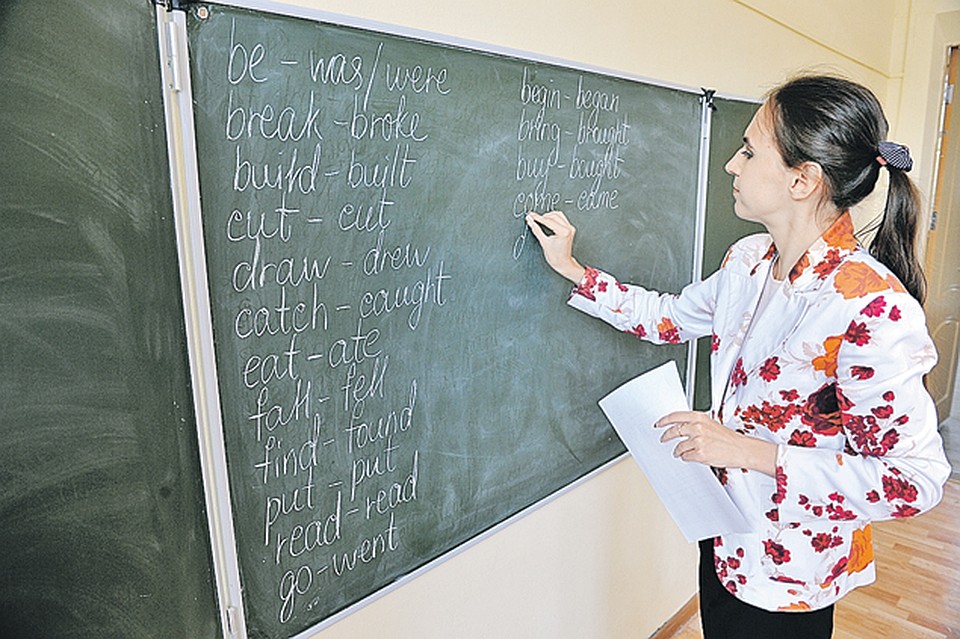 be - was/were
break - broke
build - built
cut - cut
draw - drew
catch - caught
eat - ate
fall - fell
find - found
put - put
read - read
go - went
begin - began
bring - brought
buy - bought
come - came